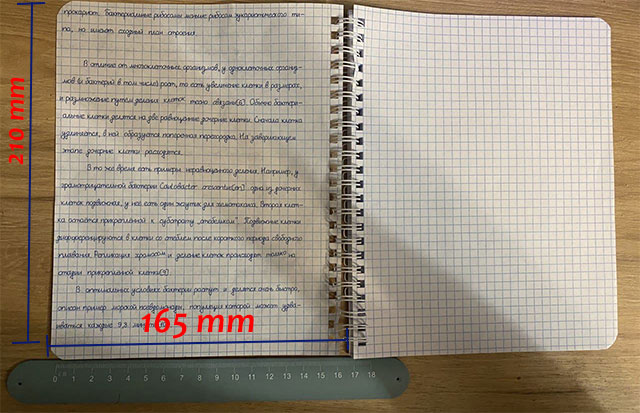 прокариот. Бактериальные рибосомы меньше рибосом эукариотического ти-
па, но имеют сходный план строения.
В отличие от многоклеточных организмов, у одноклеточных организ-
мов (и бактерий в том числе) рост, то есть увеличение клетки в размерах,
и размножение путем деления клеток тесно связаны[6]. Обычно бактери-
альные клетки делятся на две равноценные дочерние клетки. Сначала клетка
удлиняется, в ней образуется поперечная перегородка. На завершающем
этапе дочерние клетки расходятся.
В то же время есть примеры неравноценного деления. Например, у
грамотрицательной бактерии Caulobacter crescentus[en] одна из дочерних
клеток подвижная, у нее есть один жгутик для хемотаксиса. Вторая клет-
ка остается прикрепленной к субстрату „стебельком". Подвижные клетки
дифференцируются в клетки со стеблем после короткого периода свободного
плавания. Репликация хромосом и деление клеток происходят только на
стадии прикрепленной клетки[7].
В оптимальных условиях бактерии растут и делятся очень быстро,
описан пример морской псевдомонады, популяция которой может удва-
иваться каждые 9,8 минут
210 mm
165 mm
0 1 2 3 4 5 6 7 8 9 10 11 12 13 14 15 16 17 18